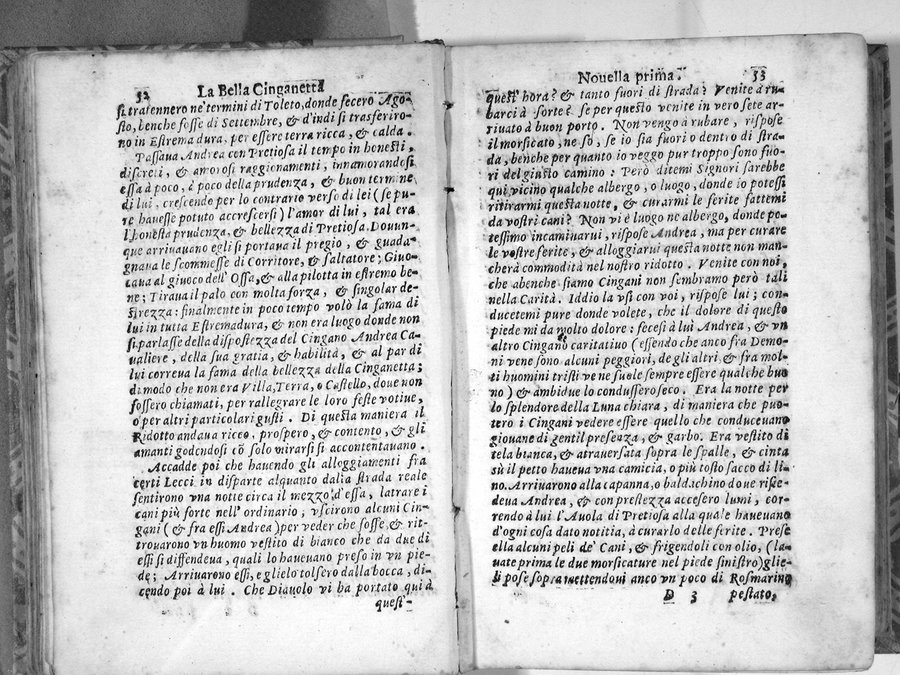 52 La Bella Cinganetta
si tratennero ne' termini di Toleto, donde fecero Ago-
sto, benche fosse di Settembre, & d'indi si trasferiro-
no in Estremadura, per essere terra ricca, & calda.
Passaua Andrea con Pretiosa il tempo in honesti,
discreti, & amorosi raggionamenti, innamorandosi
essa à poco, à poco della prudenza, & buon termine
di lui, crescendo per lo contrario verso di lei (se pu-
re hauesse potuto accrescersi) l'amor di lui, tal era
l'honestà prudenza, & bellezza di Pretiosa. Douun-
que arriuauano egli si portaua il pregio, & guada-
gnaua le scommesse di Corritore, & saltatore; Giuo-
caua al giuoco dell' Ossa, & alla pilotta in estremo be-
ne; Tiraua il palo con molta forza, & singolar de-
strezza: finalmente in poco tempo volò la fama di
lui in tutta Estremadura, & non era luogo donde non
si parlasse della dispostezza del Cingano Andrea Ca-
ualiere, della sua gratia, & habilità, & al par di
lui correua la fama della bellezza della Cinganetta;
di modo che non era Villa, Terra, o Castello, doue non
fossero chiamati, per rallegrare le loro feste votiue,
ò per altri particolari gusti. Di questa maniera il
Ridotto andaua ricco, prospero, & contento, & gli
amanti godendosi cō solo mirarsi si accontentauano.
Accadde poi che hauendo gli alloggiamenti fra
certi Lecci in disparte alquanto dalla strada reale
sentirono vna notte circa il mezzo d'essa, latrare i
cani più forte nell'ordinario, vscirono alcuni Cin-
gani (& fra essi Andrea) per veder che fosse & rit-
trouarono vn huomo vestito di bianco che da due di
essi si diffendeua, quali lo haueuano preso in vn pie-
de; Arriuarono essi, e glielo tolsero dalla bocca, di-
cendo poi à lui. Che Diauolo vi ha portato quì à
quest'-
Nouella prima. 53
quest' hora? & tanto fuori di strada? Venite à ru-
barci à sorte? se per questo venite in vero sete ar-
riuato à buon porto. Non vengo à rubare, rispose
il morsicato, ne so, se io sia fuori o dentro di stra-
da, benche per quanto io veggo pur troppo sono fuo-
ri del giusto camino: Però ditemi Signori sarebbe
qui vicino qualche albergo, o luogo, donde io potessi
ritirarmi questa notte, & curarmi le ferite fattemi
da vostri cani? Non vi è luogo ne albergo, donde po-
tessimo incaminarui, rispose Andrea, ma per curare
le vostre ferite, & alloggiarui questa notte non man-
cherà commodità nel nostro ridotto. Venite con noi,
che abenche siamo Cingani non sembramo però tali
nella Carità. Iddio la vsi con voi, rispose lui; con-
ducetemi pure donde volete, che il dolore di questo
piede mi da molto dolore: fecesi à lui Andrea, & vn
altro Cingano caritatiuo (essendo che anco fra Demo-
ni vene sono alcuni peggiori, de gli altri & fra mol-
ti huomini tristi ve ne suole sempre essere qualche buo
no) & ambidue lo condussero seco. Era la notte per
lo splendore della Luna chiara, di maniera che puo-
tero i Cingani vedere essere quello che conduceuano
giouane di gentil presenza, & garbo. Era vestito di
tela bianca, & atrauersata sopra le spalle, & cinta
sù il petto haueua vna camicia, o più tosto sacco di li-
no. Arriuarono alla capanna, o baldachino doue risie-
deua Andrea, & con prestezza accesero lumi, cor-
rendo à lui l'Auola di Pretiosa alla quale haueuano
d'ogni cosa dato notitia, à curarlo delle ferite. Prese
ella alcuni peli de' Cani, & frigendoli con olio, (la-
uate prima le due morsicature nel piede sinistro) glie-
li pose sopra mettendoui anco vn poco di Rosmarino
D 3 pestato,